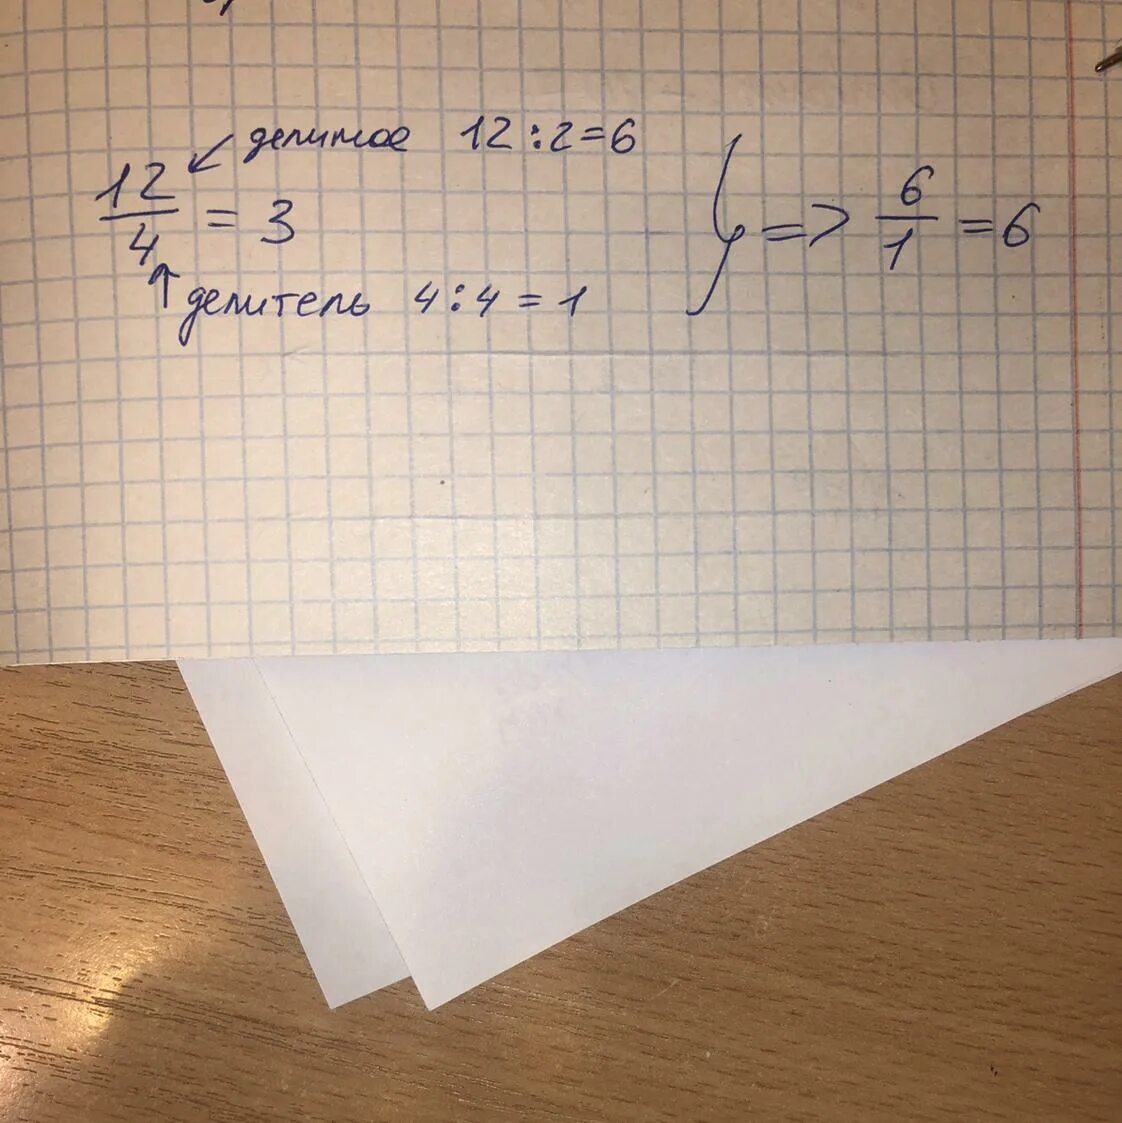 делимое 12:2=6
12/4 = 3
делитель 4:4=1
} => 6/1 = 6